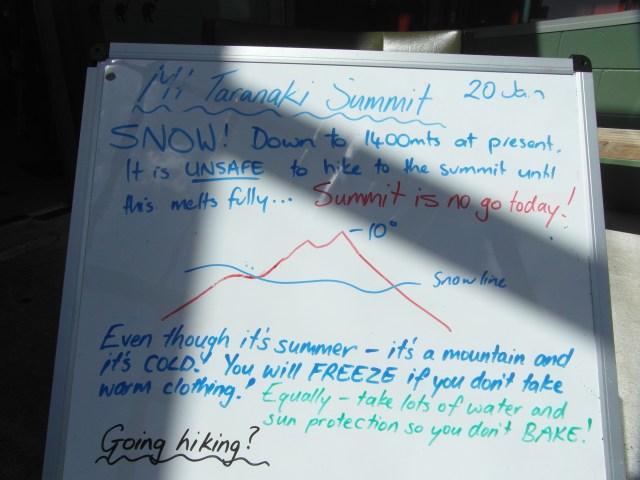 Mt Taranaki Summit 20 Jan
SNOW! Down to 1400mts at present.
It is UNSAFE to hike to the summit until
this melts fully... Summit is no go today!
-10°
Snowline
Even though it's summer - it's a mountain and
it's COLD! You will FREEZE if you don't take
warm clothing! Equally - take lots of water and
sun protection so you don't BAKE!
Going hiking?